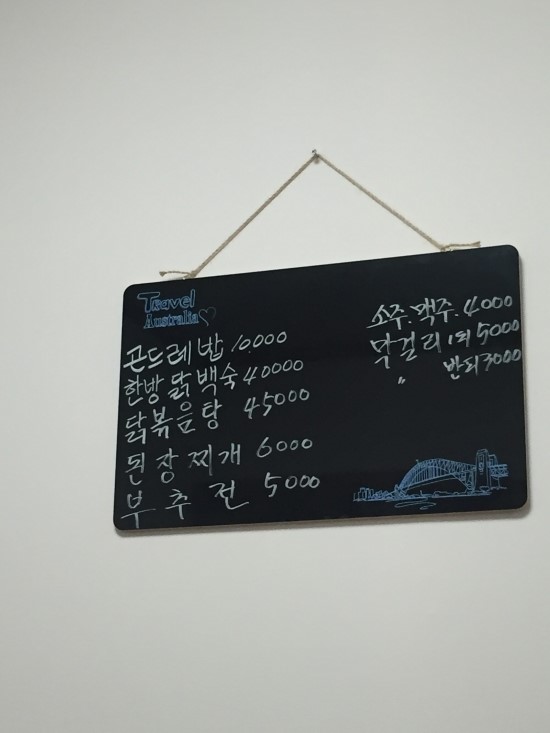 Travel
Australia
곤드레밥 10.000
한방닭백숙 40000
닭볶음탕 45000
된장찌개 6000
부추전 5000
소주.맥주.4000
막걸리 1되 5000
〃 반되 3000